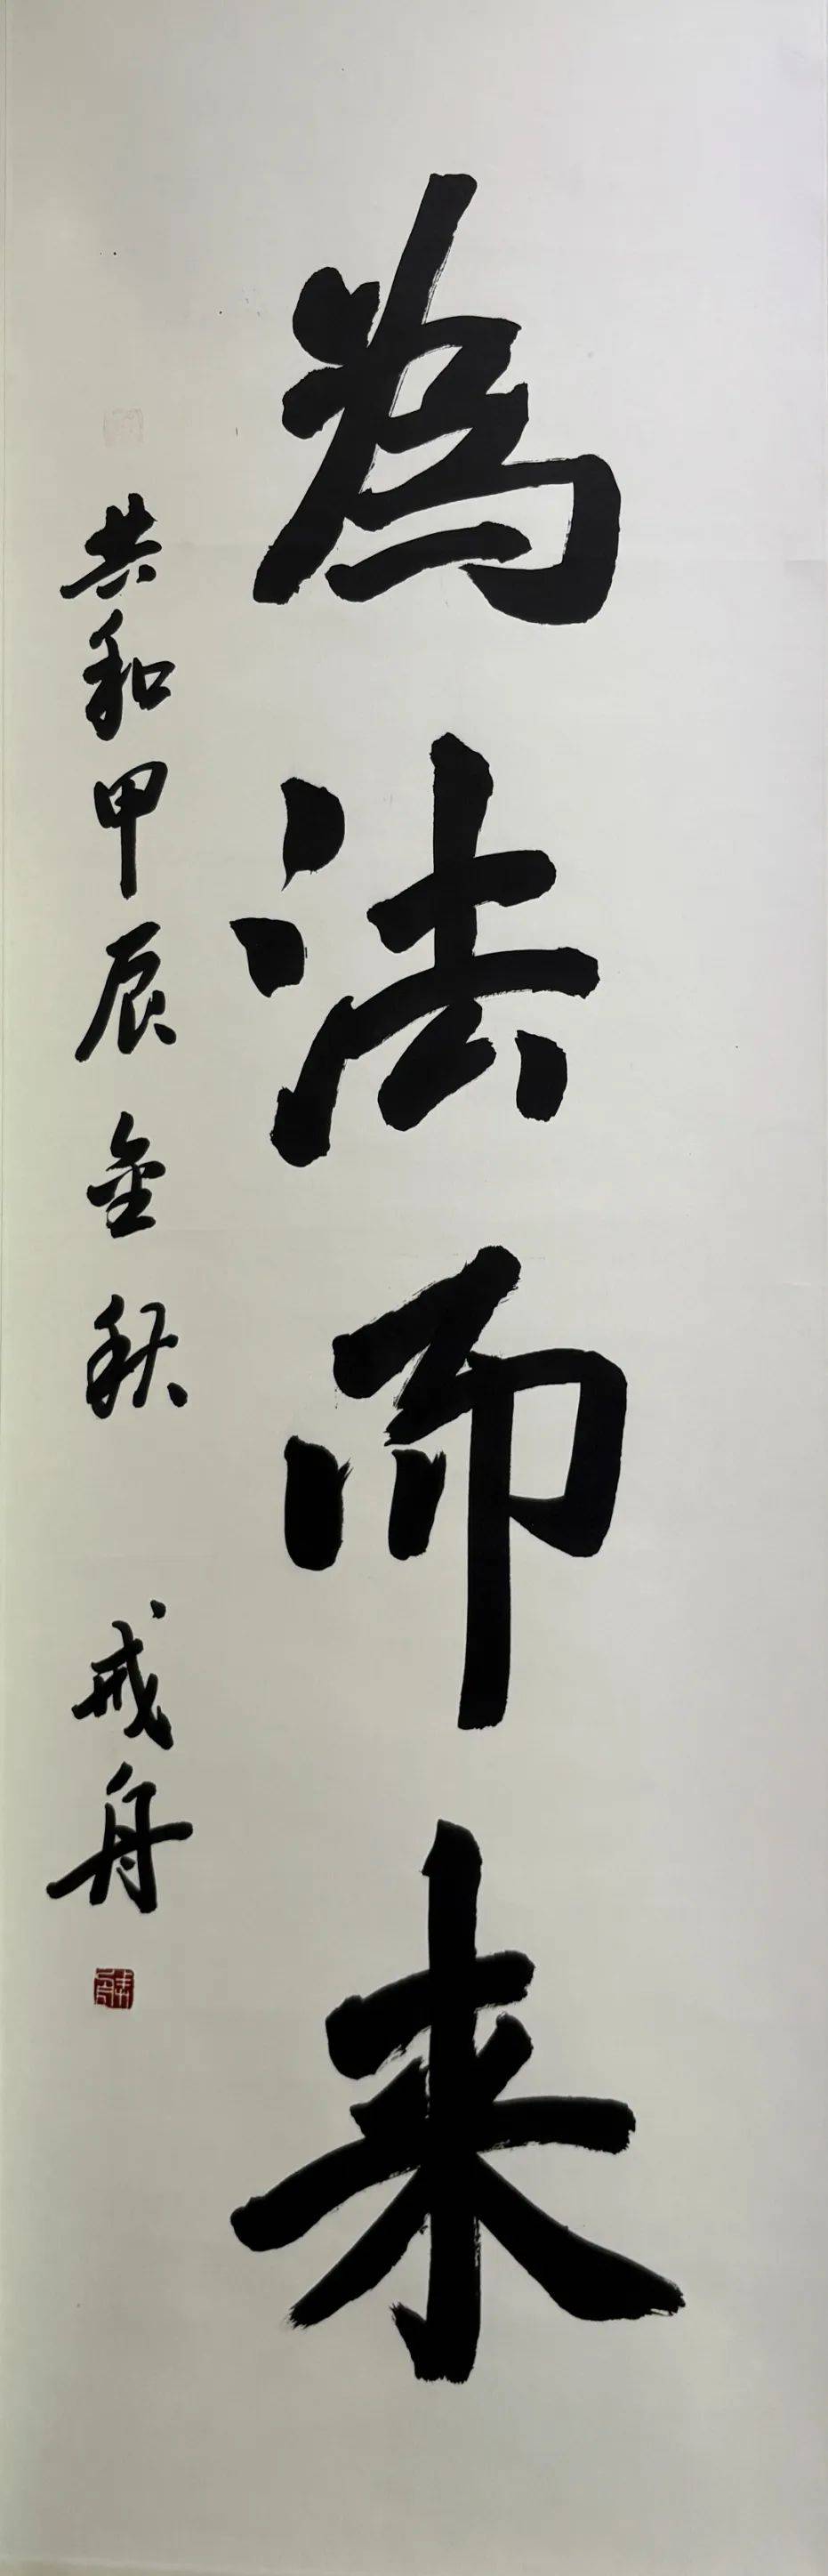 為法而来
共和甲辰金秋 戒舟